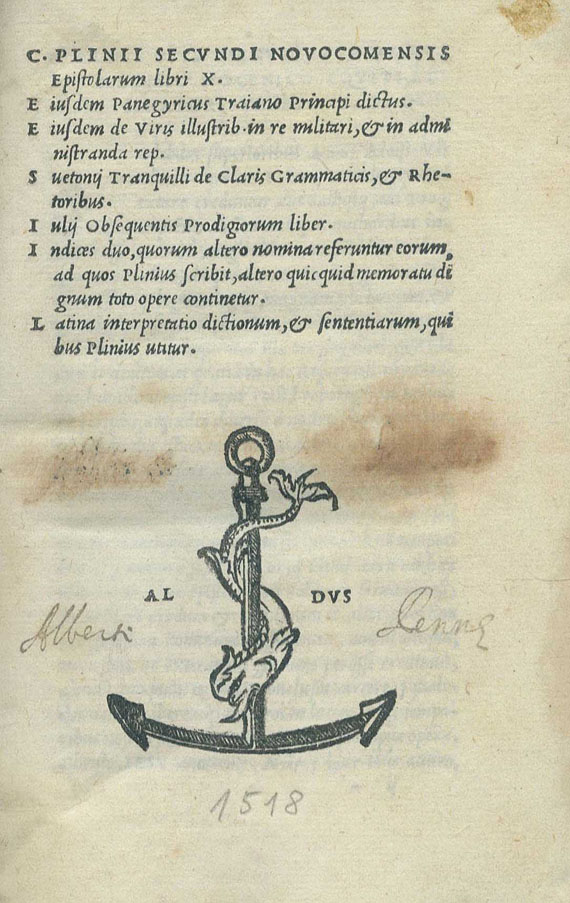 C. PLINII SECVNDI NOVOCOMENSIS
Epiſtolarum libri X.
E iuſdem Panegyricus Traiano Principi dictus.
E iuſdem de Viris illuſtrib. in re militari, & in admi
niſtranda rep.
S uetonij Tranquilli de Claris Grammaticis, & Rhe-
toribus.
I ulij Obſequentis Prodigiorum liber.
I ndices duo, quorum altero nomina referuntur eorum,
ad quos Plinius ſcribit, altero quicquid memoratu di
gnum toto opere continetur.
L atina interpretatio dictionum, & ſententiarum, qui
bus Plinius utitur.
AL DVS
Alberk
1518